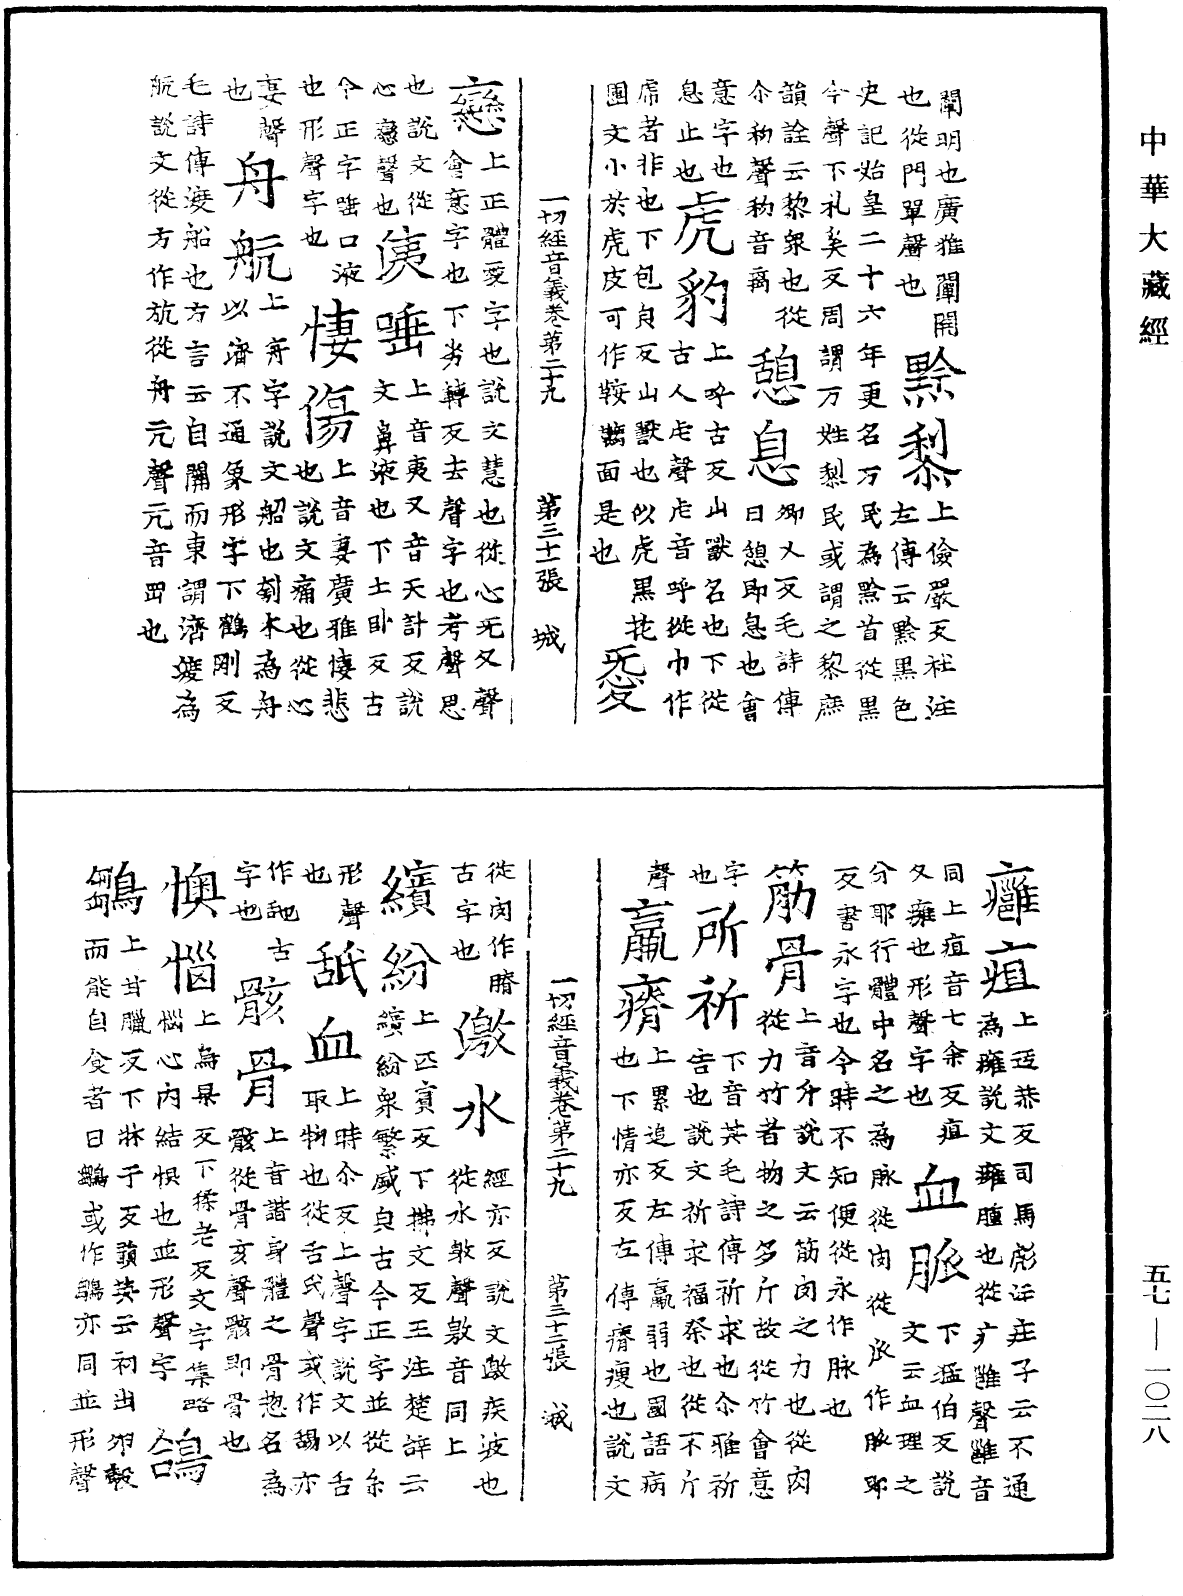 中華大藏經
闡明也廣雅闡開
也從門單聲也
黔黎
上儉嚴反杜注
左傳云黔黑色
史記始皇二十六年更名万民為黔首從黑
今聲下礼奚反周謂万姓黎民或謂之黎庶
韻詮云黎衆也從
尒𥝢聲𥝢音离
憩息
卿乂反毛詩傳
曰憩即息也會
意字也
息止也
虎豹
上呼古反山獸名也下從
古人虍聲虍音呼從巾作
乕者非也下包皃反山獸也似虎黑花
圓文小於虎皮可作鞍韉面是也
㤅
一切經音義卷第二十九 第三十一張 城
戀
上正體㤅字也說文慧也從心旡又聲
會意字也下劣轉反去聲字也考聲思
也說文從
心䜌聲也
洟唾
上音夷又音天計反說
文鼻液也下土卧反古
今正字唾口液
也形聲字也
悽傷
上音妻廣雅悽悲
也說文痛也從心
妻聲
也
舟航
上舟字說文船也刳木為舟
以濟不通象形字下鶴剛反
毛詩傳渡船也方言云自關而東謂濟渡為
航說文從方作斻從舟亢聲亢音罡也
癰疽
上邕恭反司馬彪注莊子云不通
為癰說文癰腫也從疒雝聲雝音
同上疽音七余反疽
久癰也形聲字也
血脈
下猛伯反說
文云血理之
分耶行體中名之為脉從肉從𠂢作脈郎
反書永字也今時不知便從永作脉也
筋骨
上音斤說文云筋肉之力也從肉
從力竹者物之多斤故從竹會意
字
也
所祈
下音其毛詩傳祈求也尒雅祈
告也說文祈求福祭也從不斤
聲
羸瘠
上累追反左傳羸弱也國語病
也下情亦反左傳瘠瘦也說文
一切經音義卷第二十九 第三十二張 城
從肉作膌
古字也
激水
經亦反說文激疾波也
從水敫聲敫音同上
繽紛
上匹賓反下拂文反王注楚辞云
繽紛衆繁盛皃古今正字並從糸
形聲
也
舐血
上時尒反上聲字說文以舌
取物也從舌氏聲或作䑛亦
作𦧇古
字也
骸骨
上音諧身體之骨惣名為
骸從骨亥聲骸即骨也
懊惱
上烏杲反下猱老反文字集略
惱心内結恨也並形聲字
鴿
鶵
上甘臘反下牀于反顧英云初出卵㲉
而能自食者曰鶵或作鶵亦同並形聲
五七——一〇二八